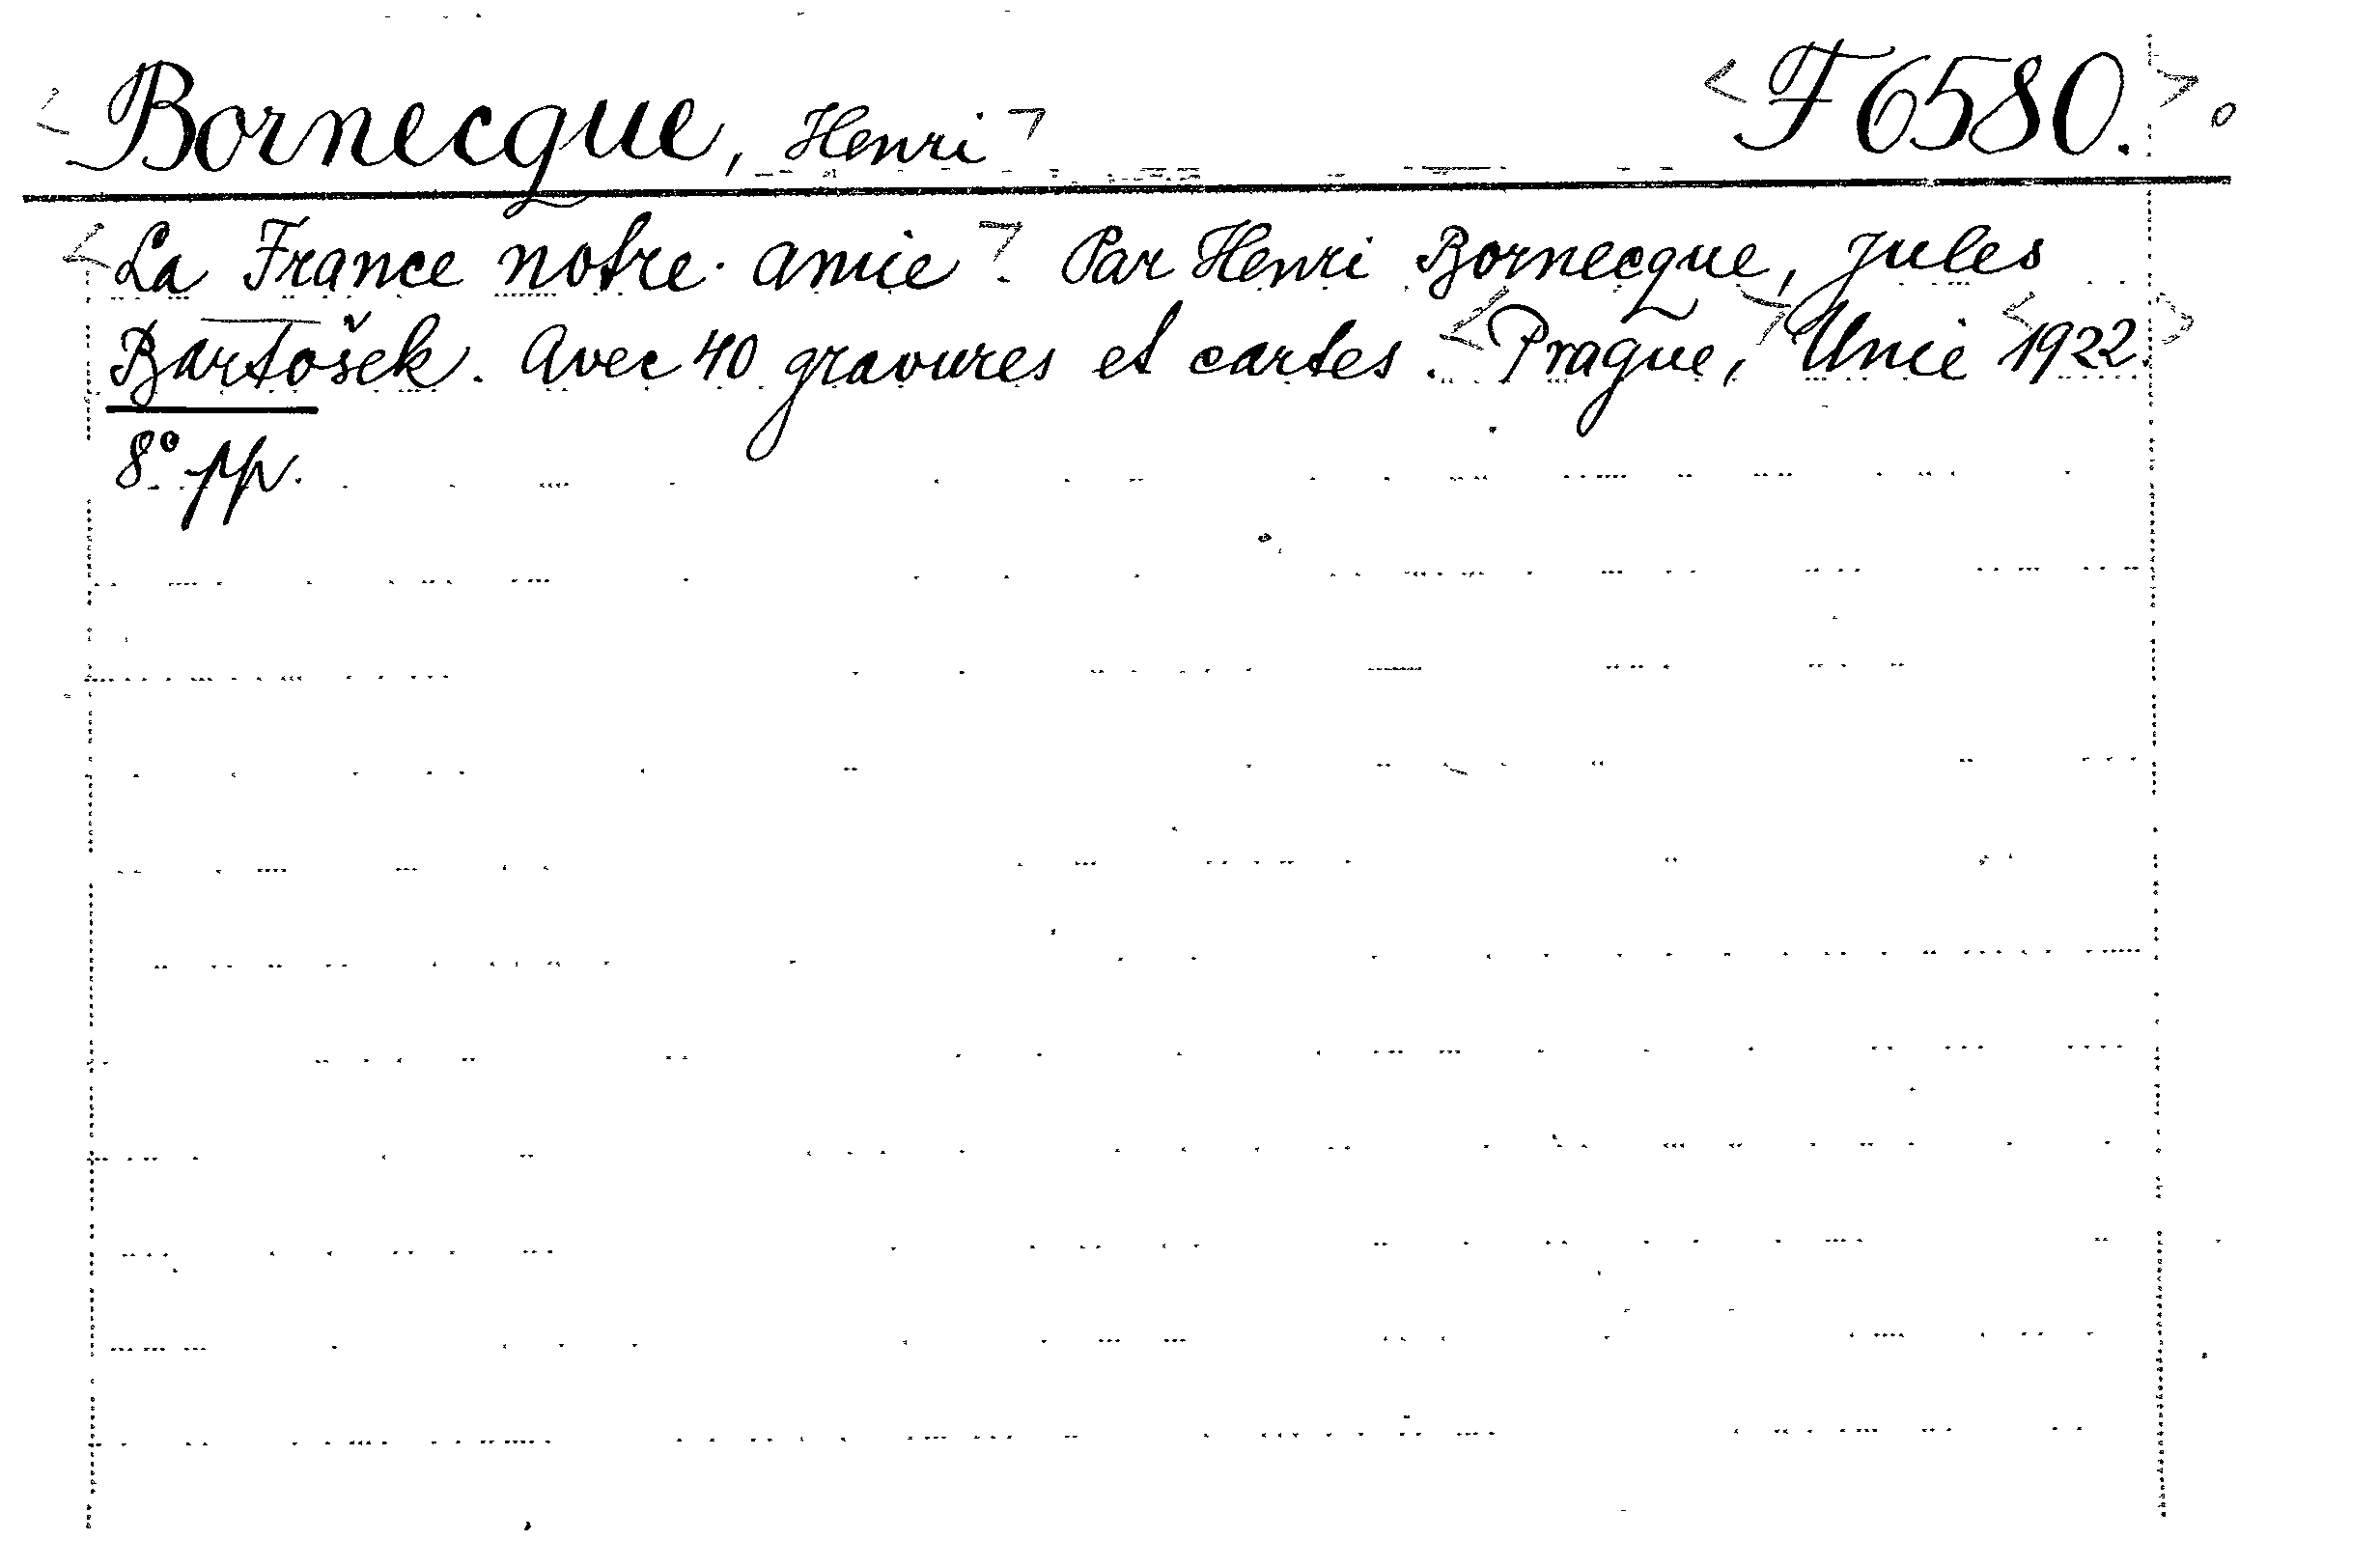 <Bornecque, Henri> <F 6580.>
<La France notre amie>. Par Henri Bornecque, Jules
Bartošek. Avec 40 gravures et cartes. <Prague,> Unie <1922.>
8° pp.